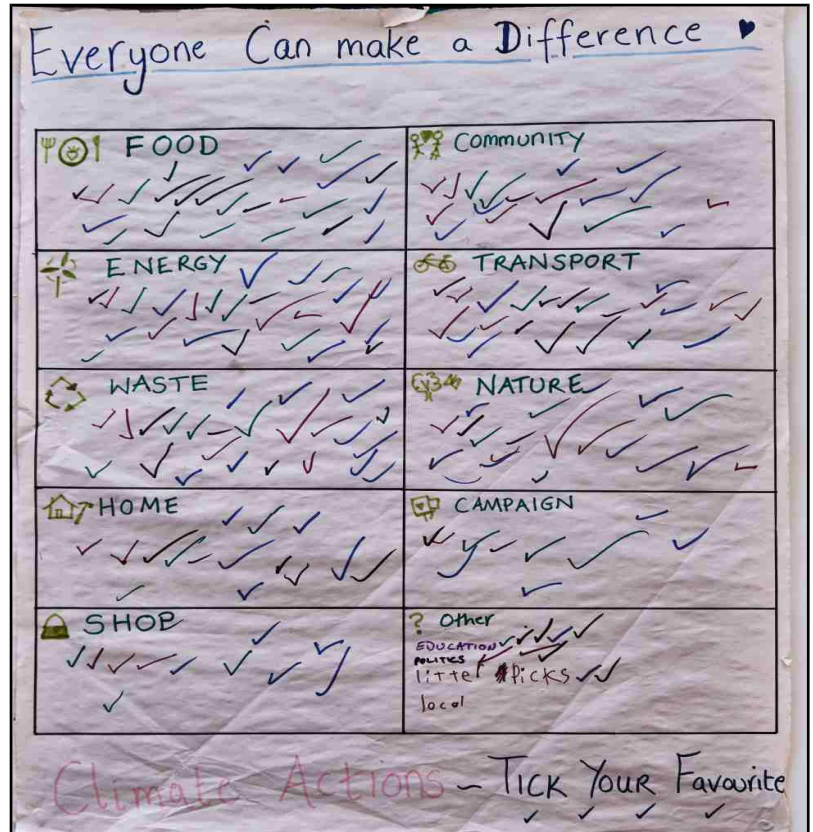 Everyone Can make a Difference
FOOD
Community
ENERGY
TRANSPORT
WASTE
NATURE
HOME
CAMPAIGN
SHOP
? Other
EDUCATION
POLITICS
litter picks
local
Climate Actions - TICK YOUR Favourite